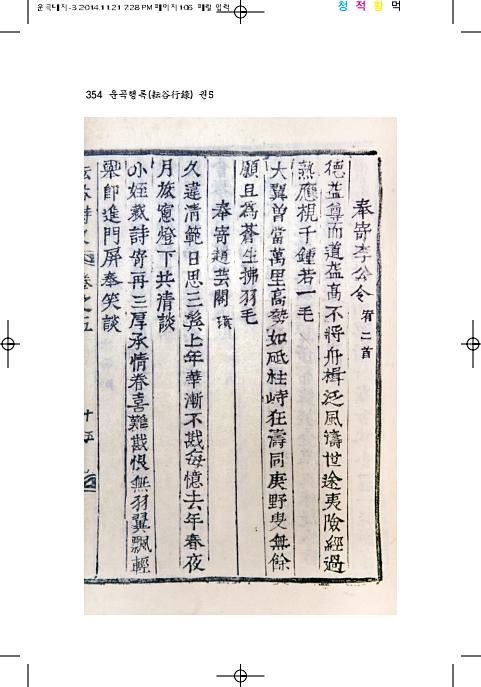 운곡대지-3 2014.11.21 7:28 PM 페이지106 매킬 입력
청 적 황 먹
354 운곡행록(耘谷行錄) 권5
奉寄李公令 宥二首
德益尊而道益高不將舟楫泛風濤世途夷險經過
熟應視千鍾若一毛
大翼曾當萬里高勢如砥柱峙狂濤同庚野叟無餘
願且爲蒼生拂羽毛
奉寄趙芸閣 璞
久違淸範日思三髮上年華漸不戡每憶去年春夜
月旅窓燈下共淸談
小姪裁詩寄再三厚承情眷喜難戡恨無羽翼飄輕
擧卽進門屛奉笑談
十五